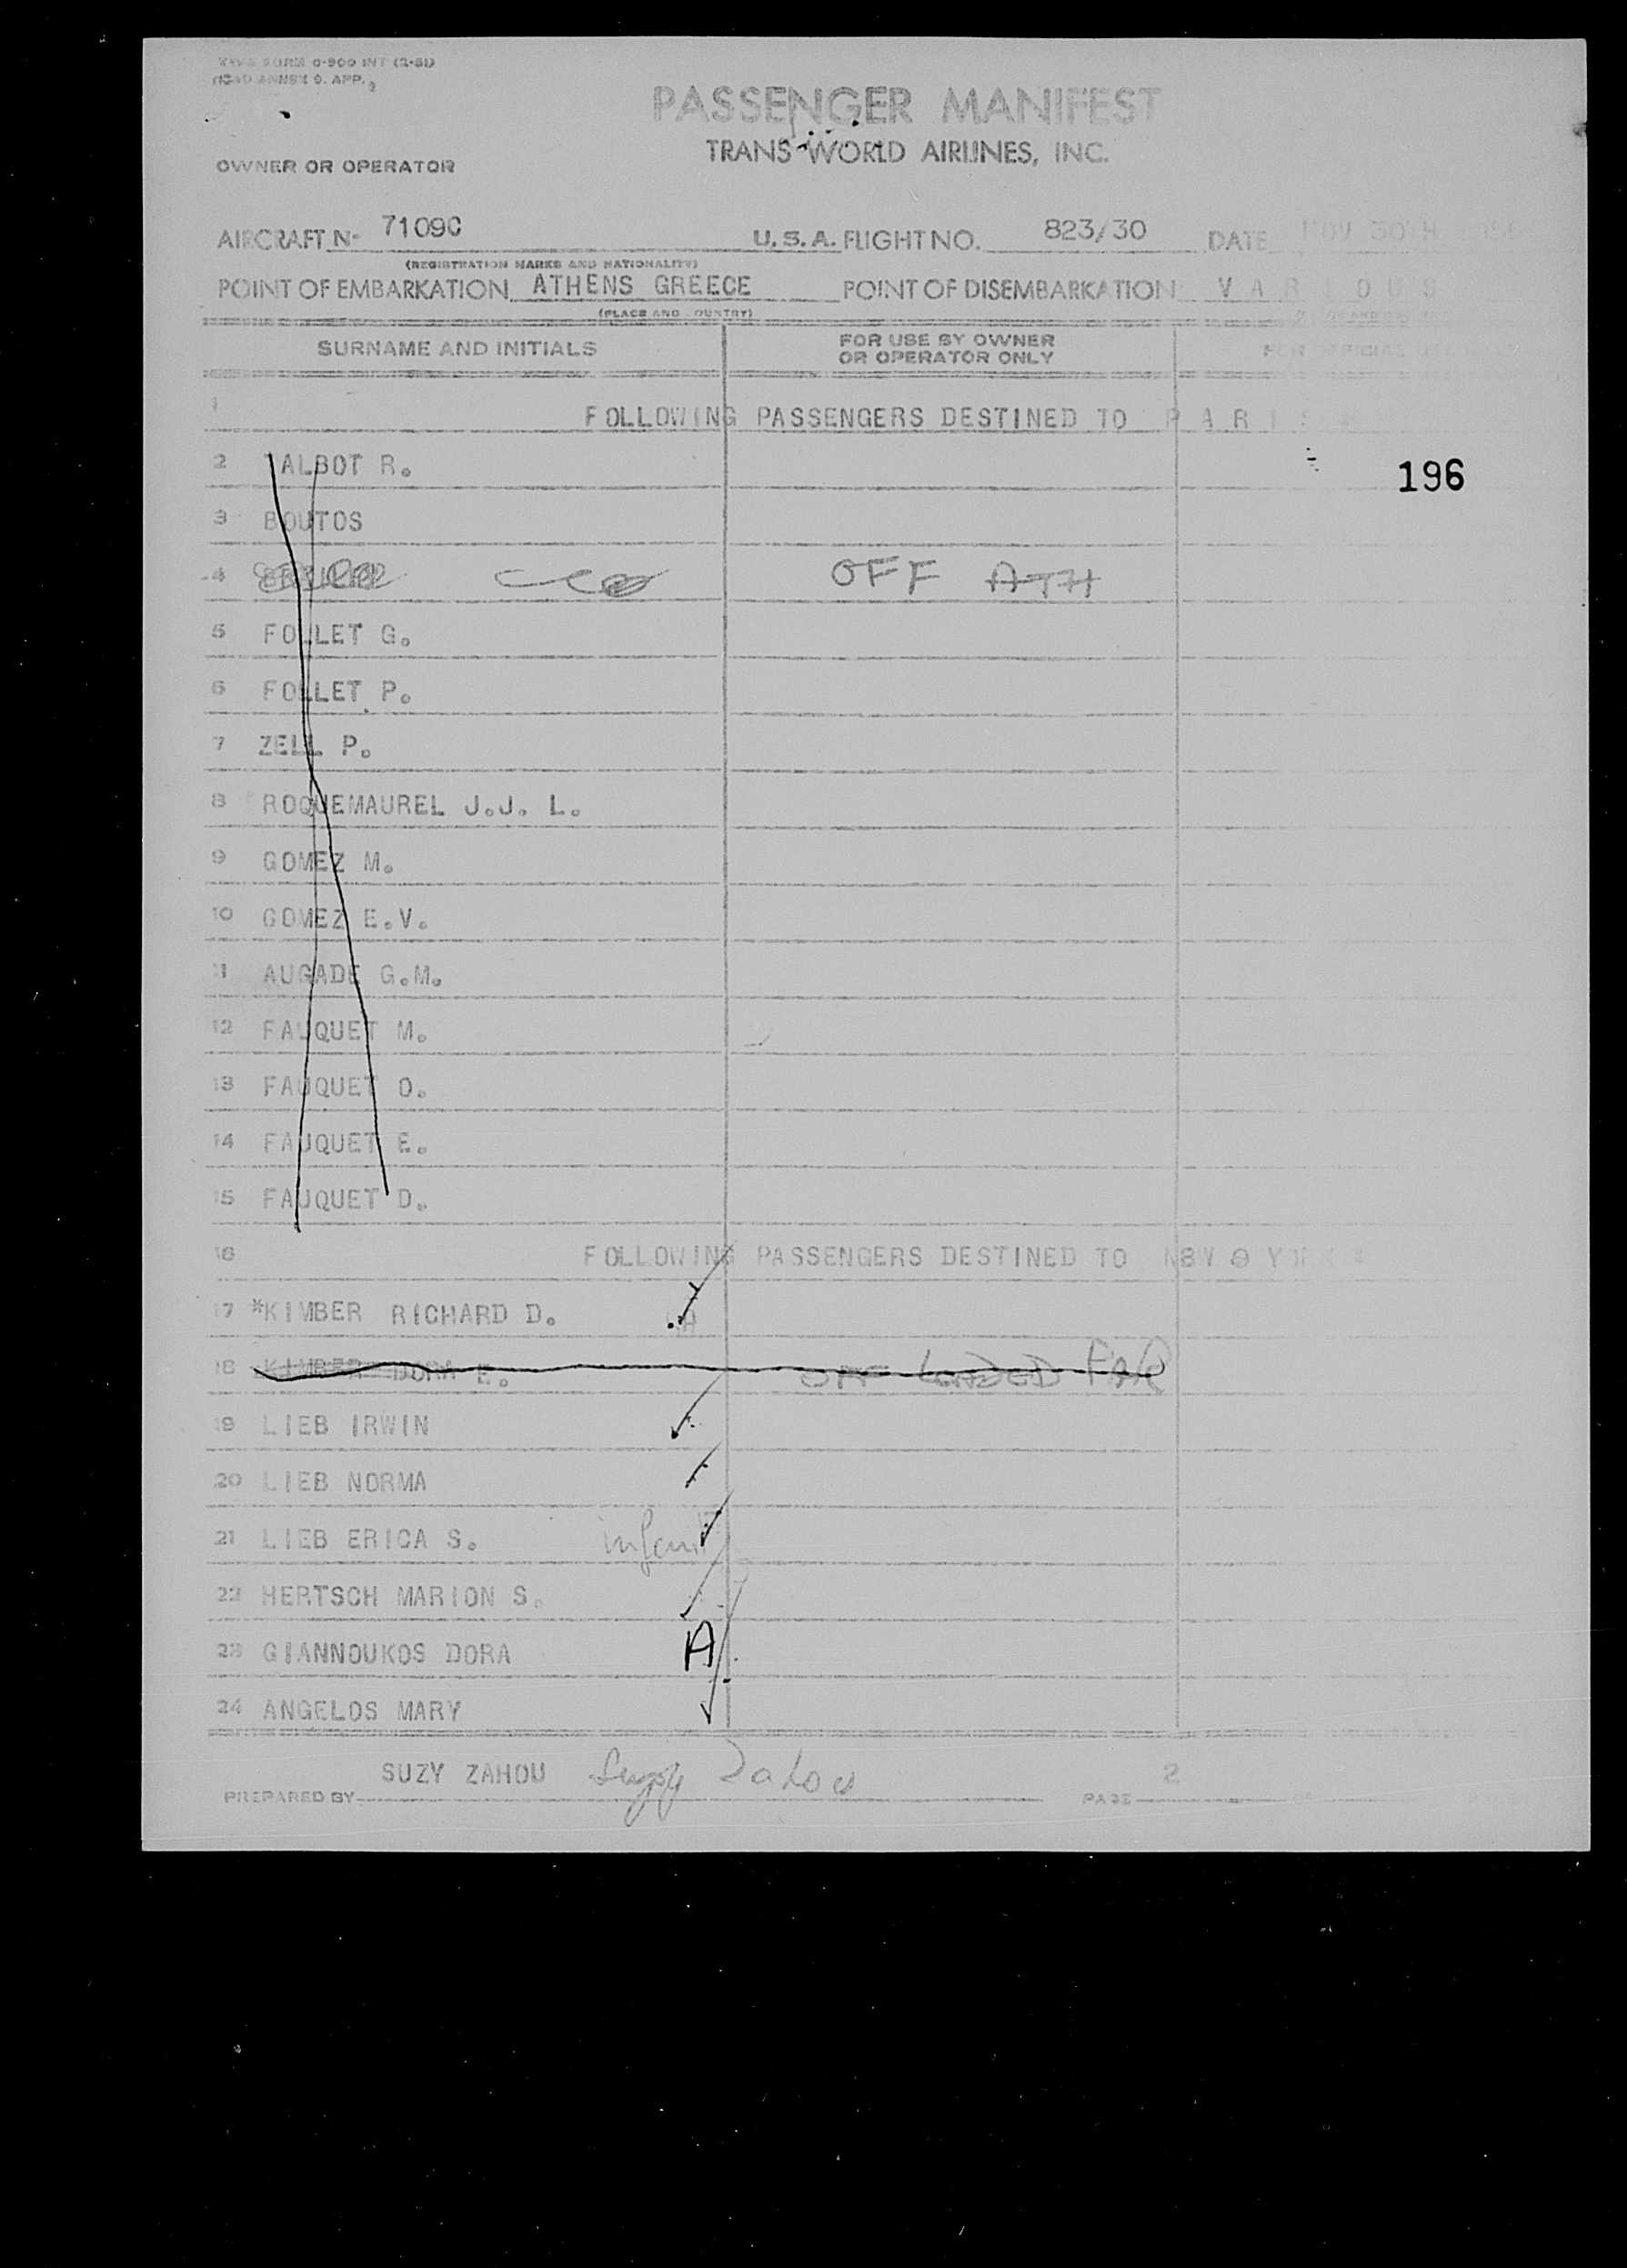 FORM 0-900 INT (2-51)
ICAO ANNEX 9. APP. 2
PASSENGER MANIFEST
TRANS WORLD AIRLINES, INC.
OWNER OR OPERATOR
AIRCRAFT No 7109C U.S.A. FLIGHT NO. 823/30 DATE NOV 30TH
(REGISTRATION MARKS AND NATIONALITY)
POINT OF EMBARKATION ATHENS GREECE POINT OF DISEMBARKATION V A R I O U S
(PLACE AND COUNTRY)
SURNAME AND INITIALS FOR USE BY OWNER OR OPERATOR ONLY FOR OFFICIAL USE ONLY
1 FOLLOWING PASSENGERS DESTINED TO P A R I S *
2 TALBOT R.
196
3 BOUTOS
4 OFF ATH
5 FOLLET G.
6 FOLLET P.
7 ZELL P.
8 ROQUEMAUREL J.J. L.
9 GOMEZ M.
10 GOMEZ E.V.
11 AUGADE G.M.
12 FAUQUET M.
13 FAUQUET O.
14 FAUQUET E.
15 FAUQUET D.
16 FOLLOWING PASSENGERS DESTINED TO NEW YORK *
17 *KIMBER RICHARD D.
18 KIMBER DORA E. OFF LOADED PAR
19 LIEB IRWIN
20 LIEB NORMA
21 LIEB ERICA S. infant
22 HERTSCH MARION S.
23 GIANNOUKOS DORA A
24 ANGELOS MARY
PREPARED BY SUZY ZAHOU Suzy Zahou PAGE 2 OF